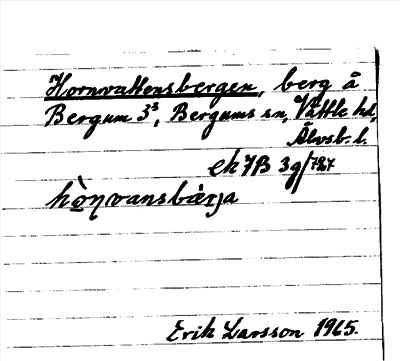 Hornvattensbergen, berg å
Bergum 3³, Bergums sn, Vättle hd,
Älvsb. l.
ek 7B 3g/787
hòŋvansbærja
Erik Larsson 1965.